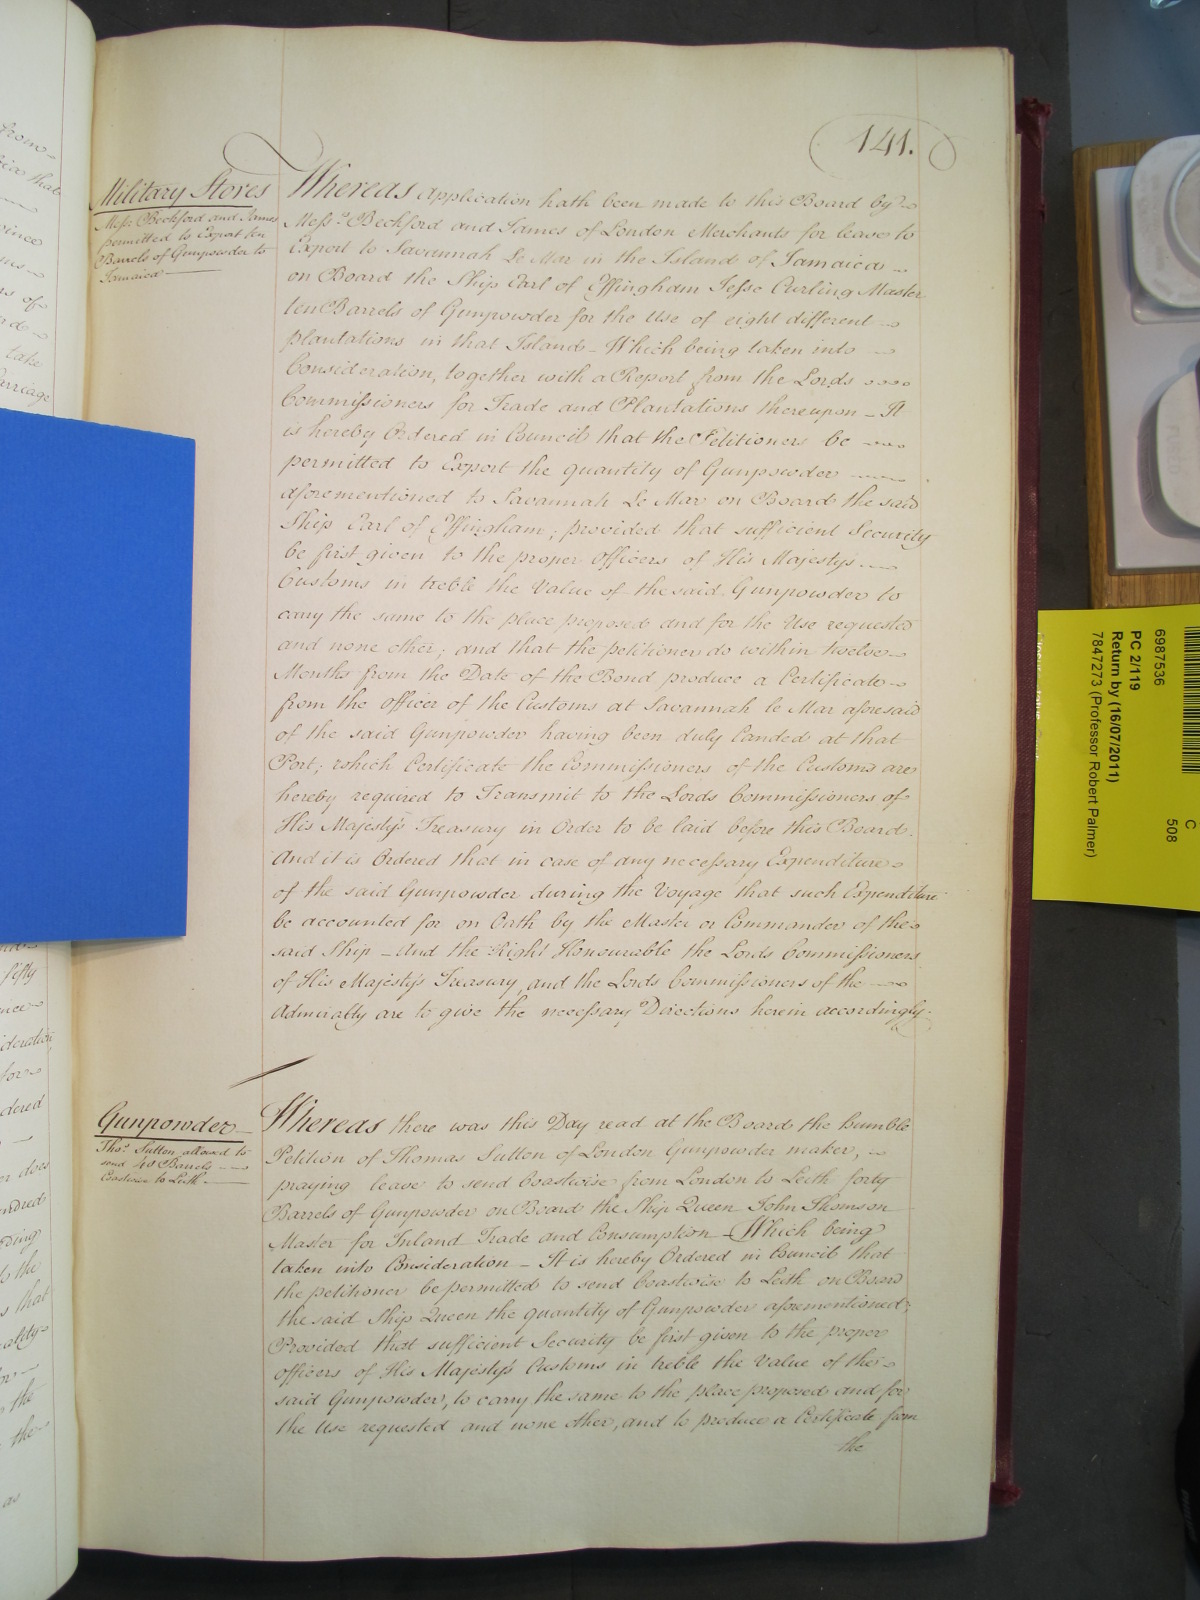 141.
Military Stores
Mess.rs Beckford and James
permitted to Export ten
Barrels of Gunpowder to
Jamaica
Whereas Application hath been made to this Board by
Mess.rs Beckford and James of London Merchants for leave to
Export to Savannah Le Mar in the Island of Jamaica
on Board the Ship Earl of Effingham Jesse Curling Master
ten Barrels of Gunpowder for the Use of eight different
plantations in that Island – Which being taken into
Consideration, together with a Report from the Lords
Commissioners for Trade and Plantations thereupon – It
is hereby Ordered in Council that the Petitioners be
permitted to Export the quantity of Gunpowder
aforementioned to Savannah Le Mar on Board the said
Ship Earl of Effingham; provided that sufficient Security
be first given to the proper Officers of His Majesty's
Customs in treble the Value of the said Gunpowder to
carry the same to the place proposed and for the Use requested
and none other; and that the petitioners do within twelve
Months from the Date of the Bond produce a Certificate
from the Officer of the Customs at Savannah le Mar aforesaid
of the said Gunpowder having been duly Landed at that
Port; which Certificate the Commissioners of the Customs are
hereby required to Transmit to the Lords Commissioners of
His Majesty's Treasury in Order to be laid before this Board.
And it is Ordered that in case of any necessary Expenditure
of the said Gunpowder during the Voyage that such Expenditure
be accounted for on Oath by the Master or Commander of the
said Ship – And the Right Honourable the Lords Commissioners
of His Majesty's Treasury, and the Lords Commissioners of the
Admiralty are to give the necessary Directions herein accordingly.
Gunpowder
Tho.s Sutton allowed to
send 40 Barrels
Coastwise to Leith
Whereas there was this Day read at the Board the humble
Petition of Thomas Sutton of London Gunpowder maker,
praying leave to send Coastwise from London to Leith forty
Barrels of Gunpowder on Board the Ship Queen John Thomson
Master for Inland Trade and Consumption – Which being
taken into Consideration – It is hereby Ordered in Council that
the petitioner be permitted to send Coastwise to Leith on Board
the said Ship Queen the quantity of Gunpowder aforementioned:
Provided that sufficient Security be first given to the proper
officers of His Majesty's Customs in treble the Value of the
said Gunpowder, to carry the same to the place proposed and for
the Use requested and none other, and to produce a Certificate from
the
C
508
6987536
PC 2/119
Return by (16/07/2011)
7847273 (Professor Robert Palmer)